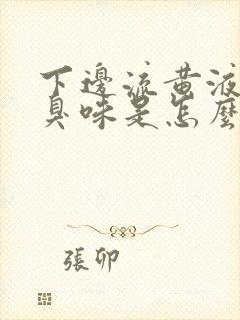 下邊流黄液
臭味是怎麼
張卯